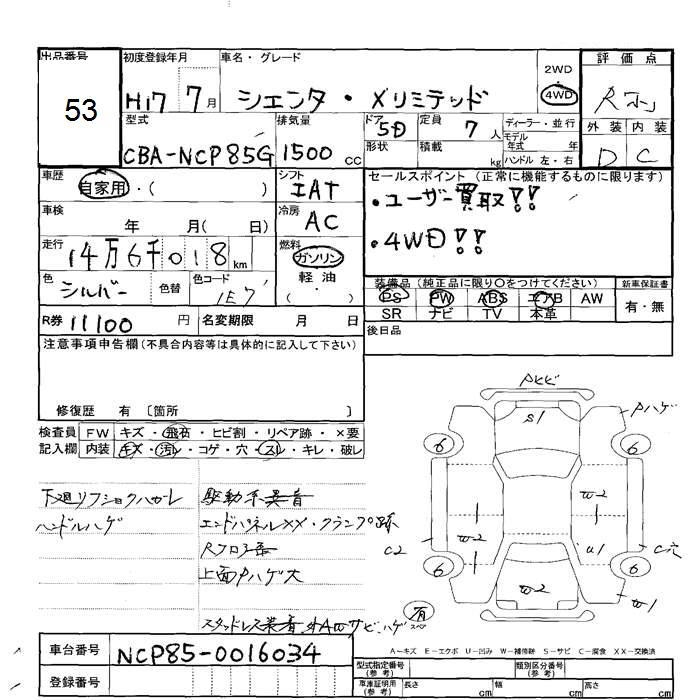 出品番号 初度登録年月 車名・グレード 2WD ・ 4WD 評価点
53 H17 7月 シエンタ・Xリミテッド
型式 排気量 ドア 定員 ディーラー・並行 外装 内装
CBA-NCP85G 1500 cc 5D 7人 モデル年式 年 D C
形状 積載 kg ハンドル 左・右
車歴 自家用・( ) シフト IAT セールスポイント (正常に機能するものに限ります)
・ユーザー買取!!
車検 年 月( 日) 冷房 AC
・4WD!!
走行 14万6千018km 燃料 ガソリン・軽油・( )
色 シルバー 色替 色コード 1E7
装備品 (純正品に限り○をつけてください) 新車保証書
PS PW ABS エアB AW 有・無
SR ナビ TV 本革
R券 11100 円 名変期限 月 日 後日品
注意事項申告欄(不具合内容等は具体的に記入して下さい)
修復歴 有 〔箇所 〕
検査員記入欄 FW キズ・飛石・ヒビ割・リペア跡・×要
内装 キズ・汚れ・コゲ・穴・スレ・キレ・破レ
下廻リフショクハガレ 駆動系異音
ハンドルハゲ エンドパネルXX・クランプ跡
上面Pハゲ大
スタッドレス装着 外AWサビ、ハゲ
Pヒビ
S1 Pハゲ
6 6
W2
C2 W2 U1 C穴
6 6
W2 W1
有 スペア
A−キズ E−エクボ U−凹み W−補修跡 S−サビ C−腐食 XX−交換済
車台番号 NCP85-0016034
型式指定番号(参考) 類別区分番号(参考)
登録番号 車庫証明用(参考) 長さ cm 幅 cm 高さ cm